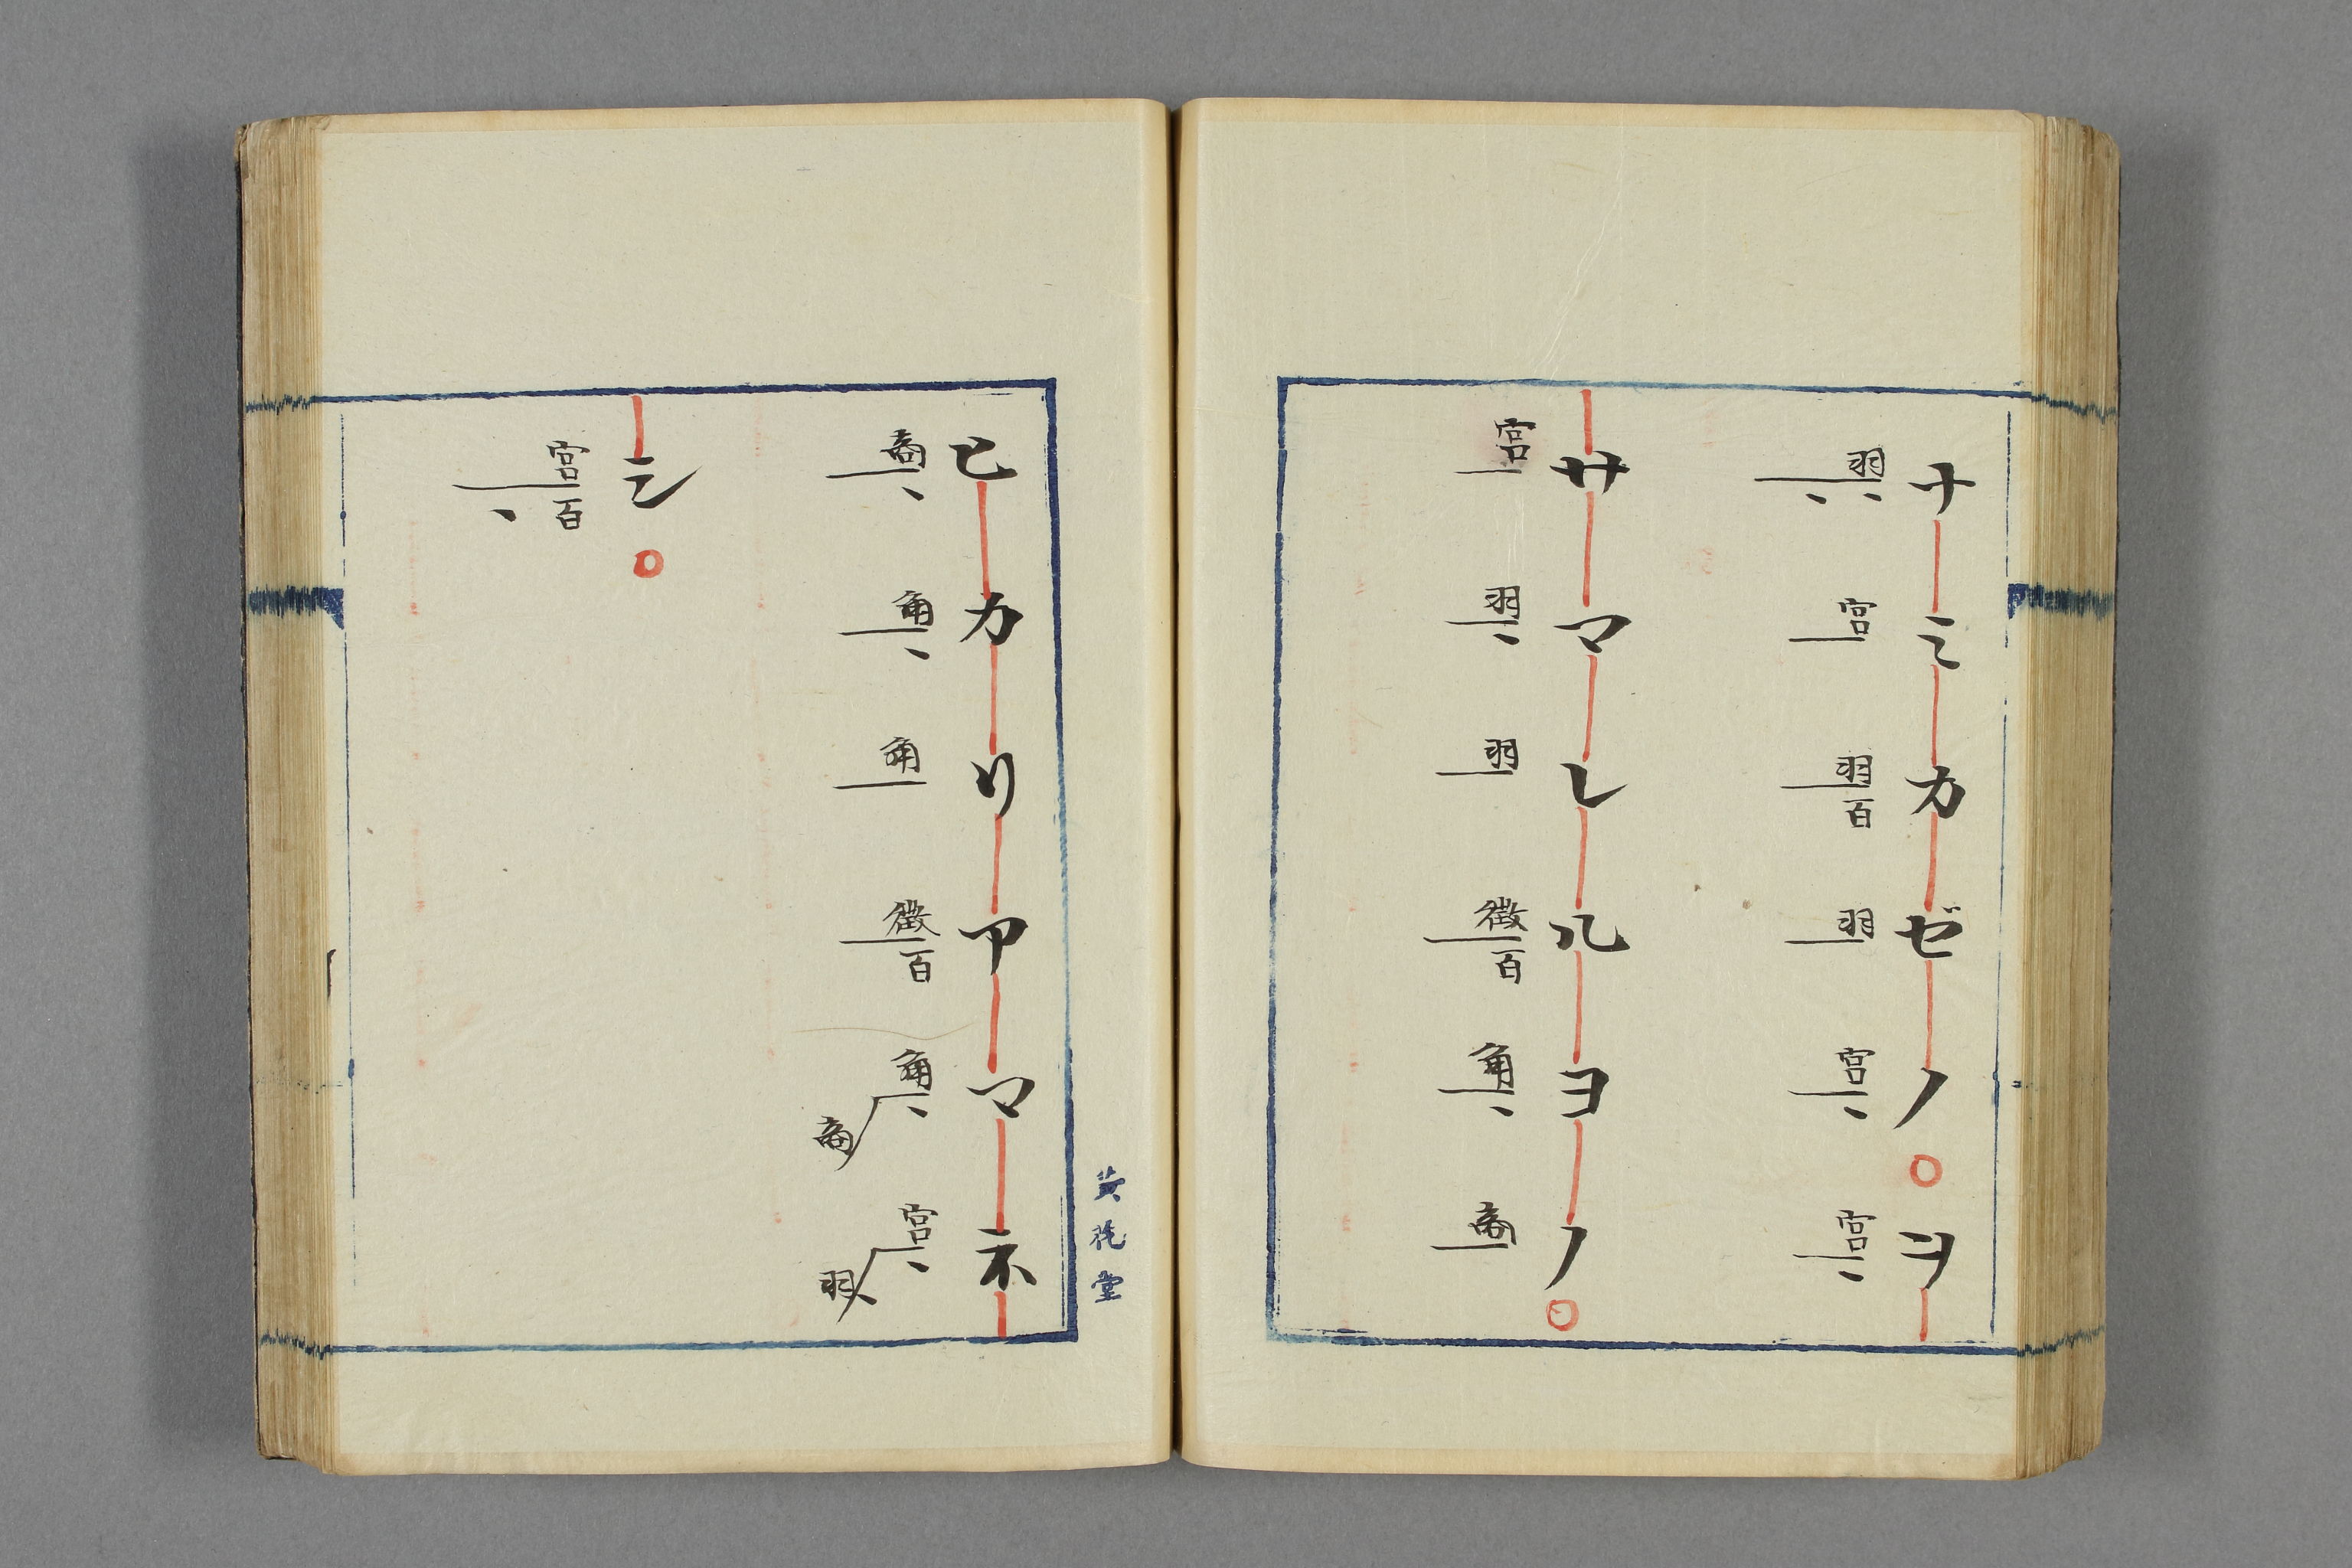 ナミカゼノ○ヲ
羽宮羽百羽宮宮
サマレルヨノ○
宮羽羽徴百角商
ヒカリアマネ
商角角徴百角商宮羽
シ○
宮百
堂